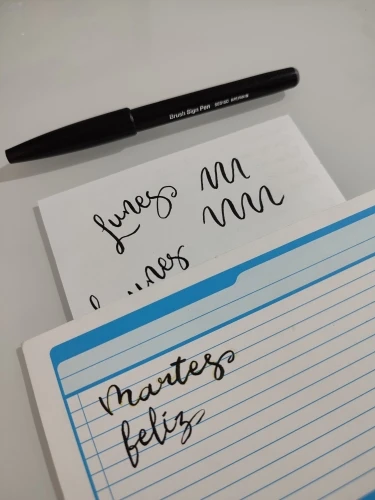 Brush Sign Pen
Lunes
Lunes
Martes
feliz